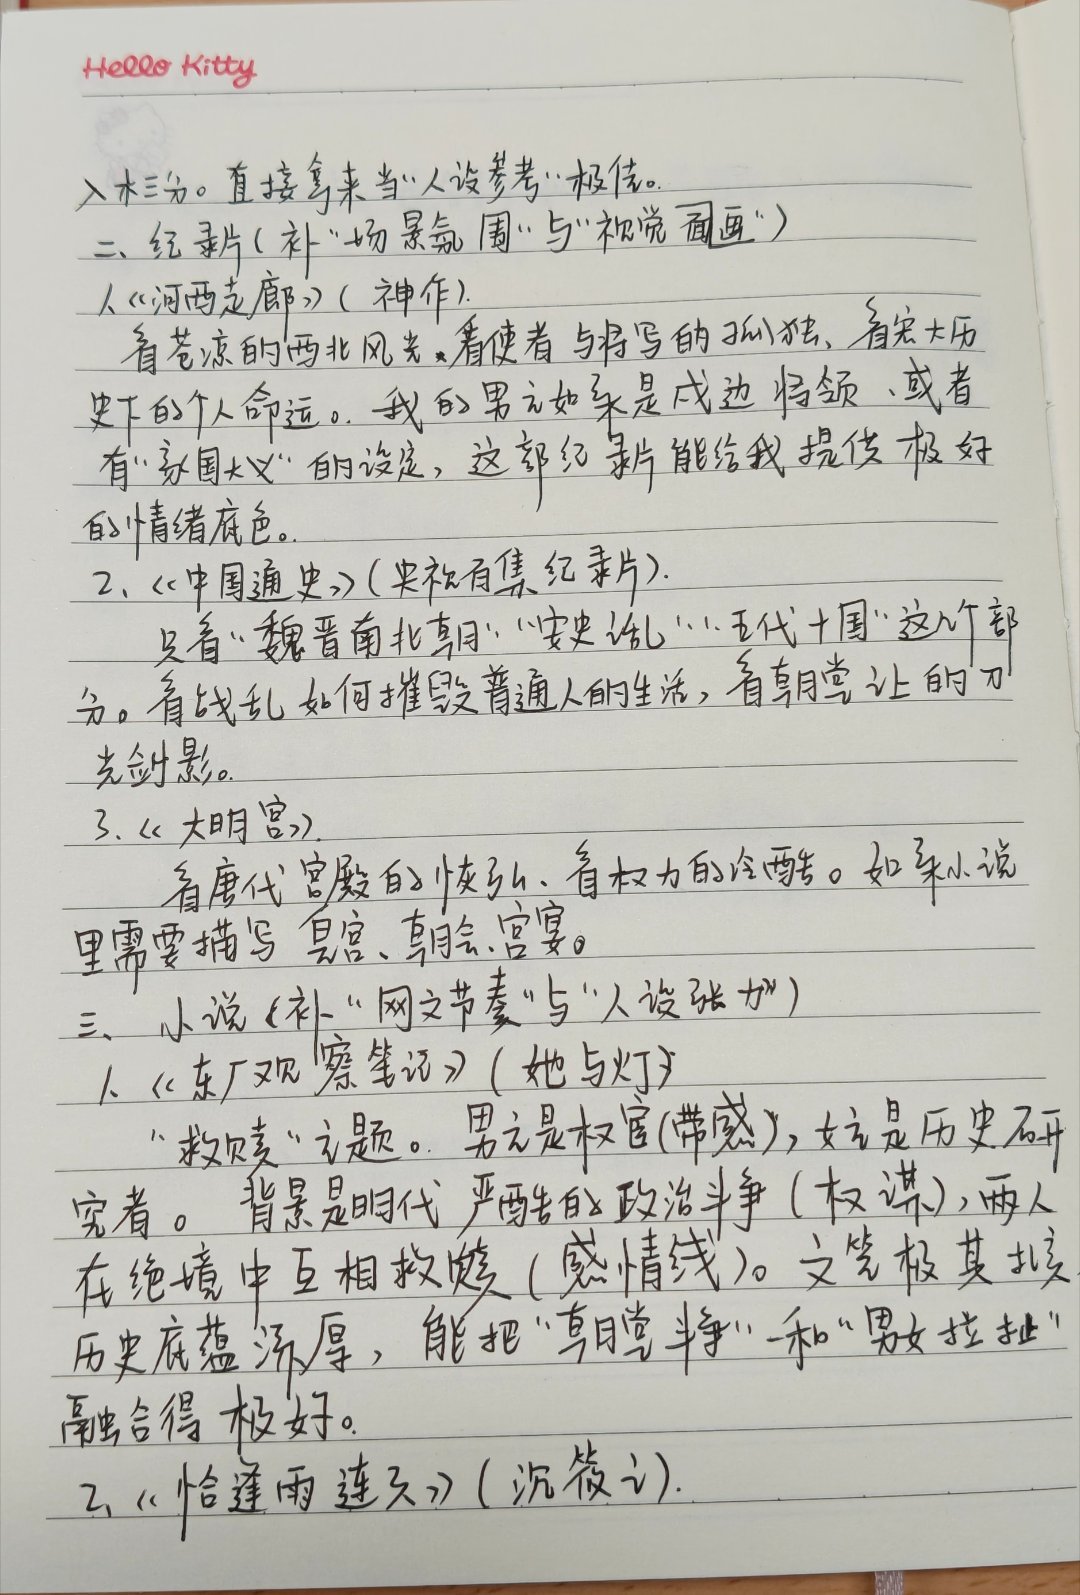 Hello Kitty
入木三分。直接拿来当“人设参考”极佳。
二、纪录片(补“场景氛围”与“视觉画面”)
1、《河西走廊》(神作).
看苍凉的西北风光、看使者与将写的孤独、看宏大历
史下的个人命运。我的男主如果是戍边将领、或者
有“家国大义”的设定，这部纪录片能给我提供极好
的情绪底色。
2、《中国通史》(央视百集纪录片).
只看“魏晋南北朝”“安史之乱”“五代十国”这几个部
分。看战乱如何摧毁普通人的生活，看朝堂上的刀
光剑影。
3.《大明宫》.
看唐代宫殿的恢弘、看权力的冷酷。如果小说
里需要描写皇宫、朝会、宫宴。
三、小说(补“网文节奏”与“人设张力”)
1、《东厂观察笔记》(她与灯)
“救赎”主题。男主是权宦(带感)，女主是历史研
究者。背景是明代严酷的政治斗争(权谋)，两人
在绝境中互相救赎(感情线)。文笔极其扎实
历史底蕴深厚，能把“朝堂斗争”和“男女拉扯”
融合得极好。
2、《恰逢雨连天》(沉筱之).